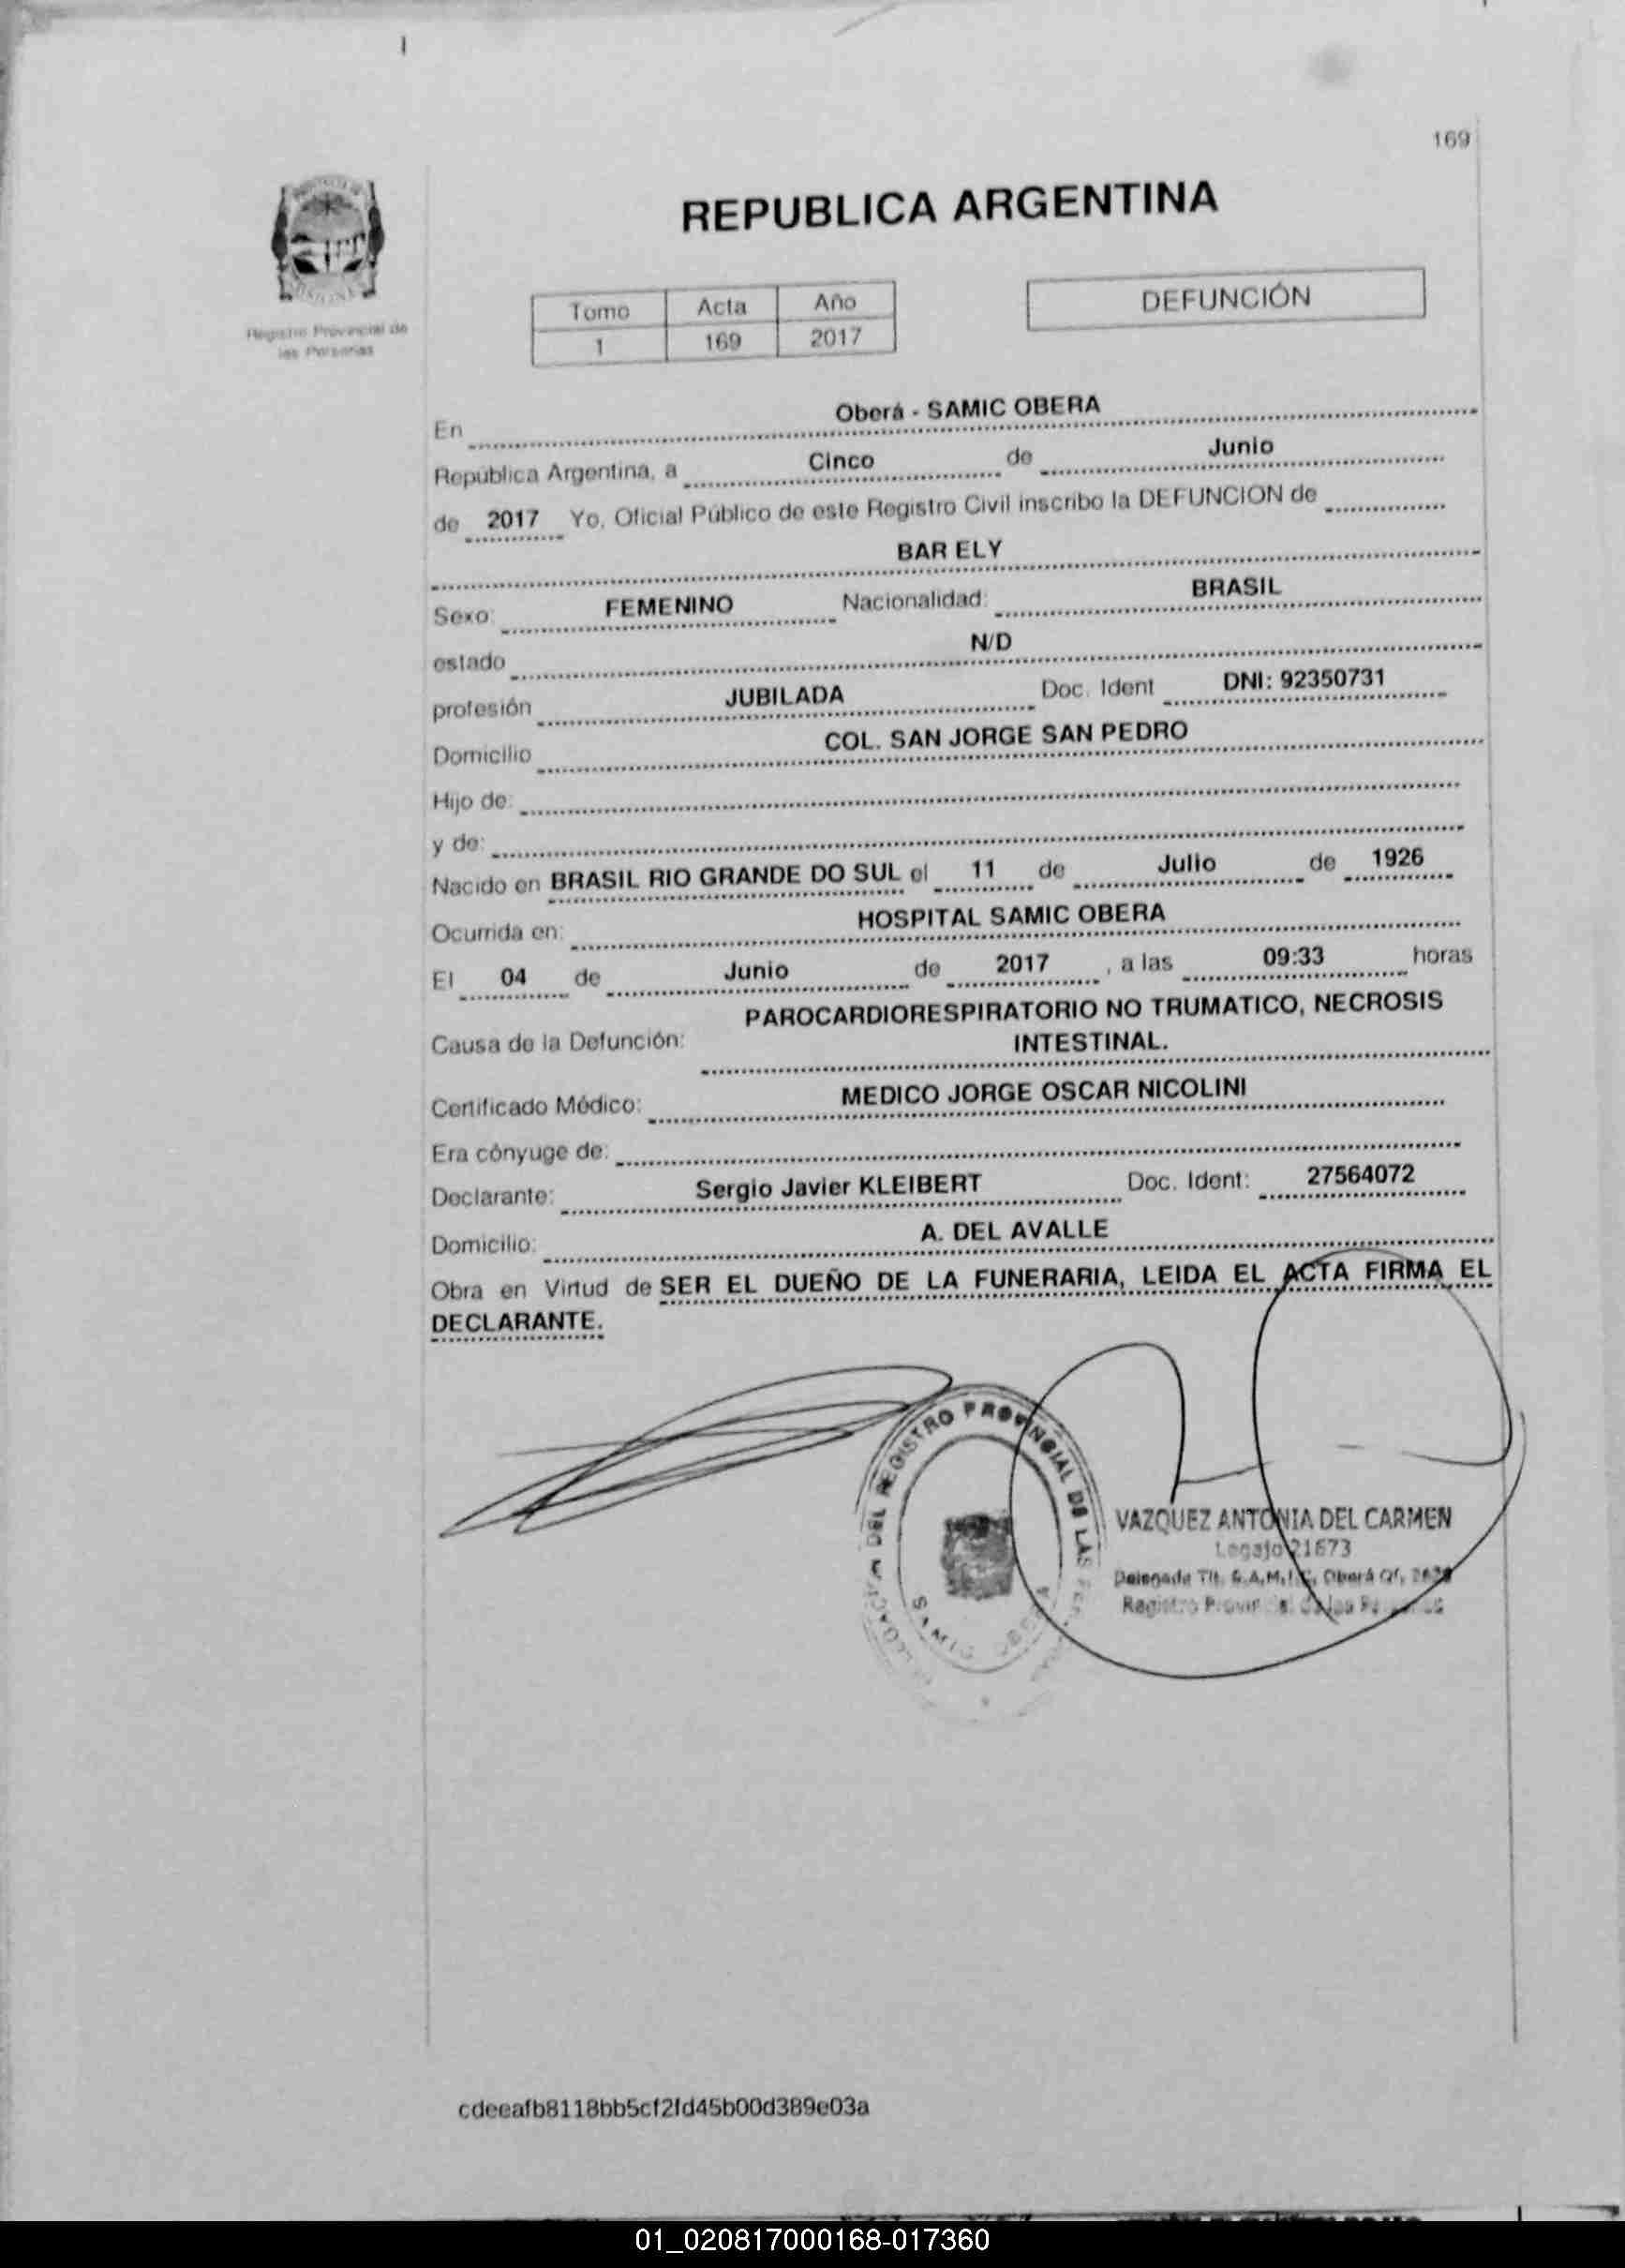 169
REPUBLICA ARGENTINA
Registro Provincial de
las Personas
Tomo Acta Año
1 169 2017
DEFUNCIÓN
En Oberá - SAMIC OBERA
República Argentina, a Cinco de Junio
de 2017 Yo, Oficial Público de este Registro Civil inscribo la DEFUNCION de
BAR ELY
Sexo: FEMENINO Nacionalidad: BRASIL
estado N/D
profesión JUBILADA Doc. Ident DNI: 92350731
Domicilio COL. SAN JORGE SAN PEDRO
Hijo de:
y de:
Nacido en BRASIL RIO GRANDE DO SUL el 11 de Julio de 1926
Ocurrida en: HOSPITAL SAMIC OBERA
El 04 de Junio de 2017 , a las 09:33 horas
PAROCARDIORESPIRATORIO NO TRUMATICO, NECROSIS
Causa de la Defunción: INTESTINAL.
Certificado Médico: MEDICO JORGE OSCAR NICOLINI
Era cónyuge de:
Declarante: Sergio Javier KLEIBERT Doc. Ident: 27564072
Domicilio: A. DEL AVALLE
Obra en Virtud de SER EL DUEÑO DE LA FUNERARIA, LEIDA EL ACTA FIRMA EL
DECLARANTE.
DEL REGISTRO PROVINCIAL DE LAS
SAMIC
VAZQUEZ ANTONIA DEL CARMEN
Legajo 21673
Delegada Tit. S.A.M.I.C. Oberá Of.
Registro
cdeeafb8118bb5cf2fd45b00d389e03a
01_020817000168-017360